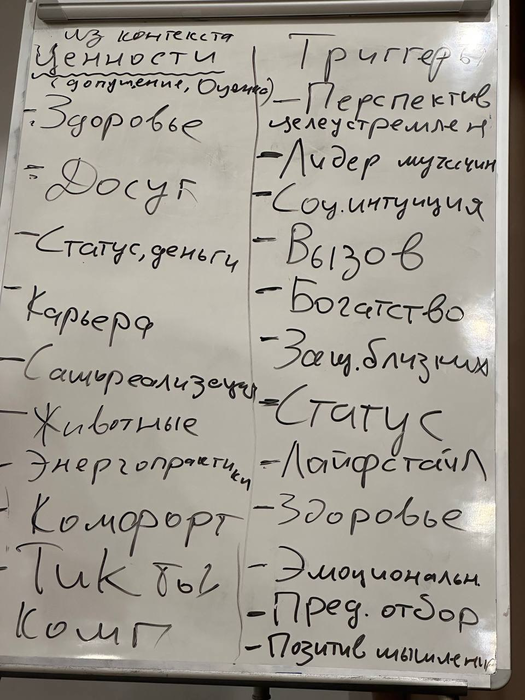 из контекста
Ценности
(допущение, Оценка)
- Здоровье
- Досуг
- Статус, деньги
- Карьера
- Самореализация
- Животные
- Энергопрактики
- Комфорт
- Тик
комп
Триггеры
- Перспектив
целеустремлен
- Лидер мужчин
- Соц. интуиция
- Вызов
- Богатство
- Защ. близких
- Статус
- Лайфстайл
- Здоровье
- Эмоциональн
- Пред. отбор
- Позитив мышлени